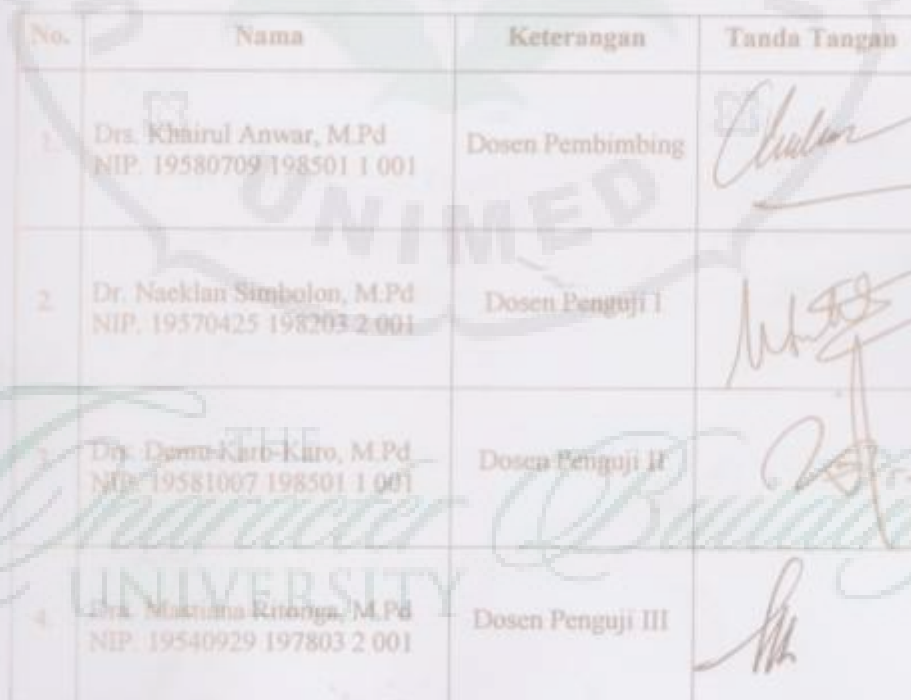 No. Nama Keterangan Tanda Tangan
1. Drs. Khairul Anwar, M.Pd
NIP. 19580709 198501 1 001
Dosen Pembimbing
2. Dr. Naeklan Simbolon, M.Pd
NIP. 19570425 198203 2 001
Dosen Penguji I
3. Drs. Demu Karo-Karo, M.Pd
NIP. 19581007 198501 1 001
Dosen Penguji II
4. Dra. Masriana Ritonga, M.Pd
NIP. 19540929 197803 2 001
Dosen Penguji III
UNIMED
THE
Character Building
UNIVERSITY